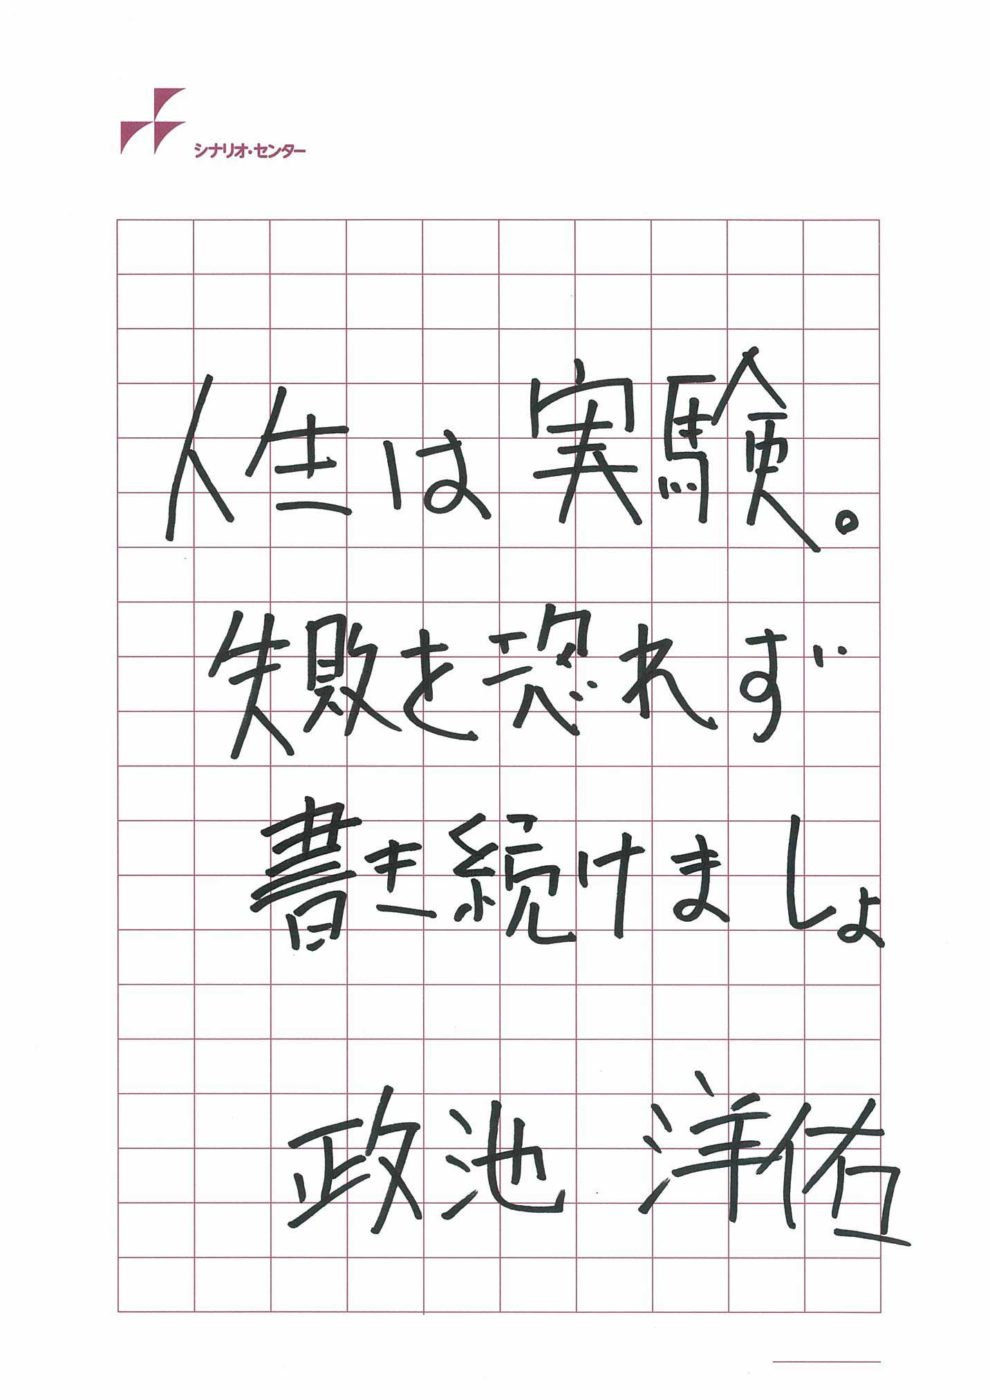 シナリオ・センター
人生は実験。
失敗を恐れず
書き続けましょ
政池 洋佑